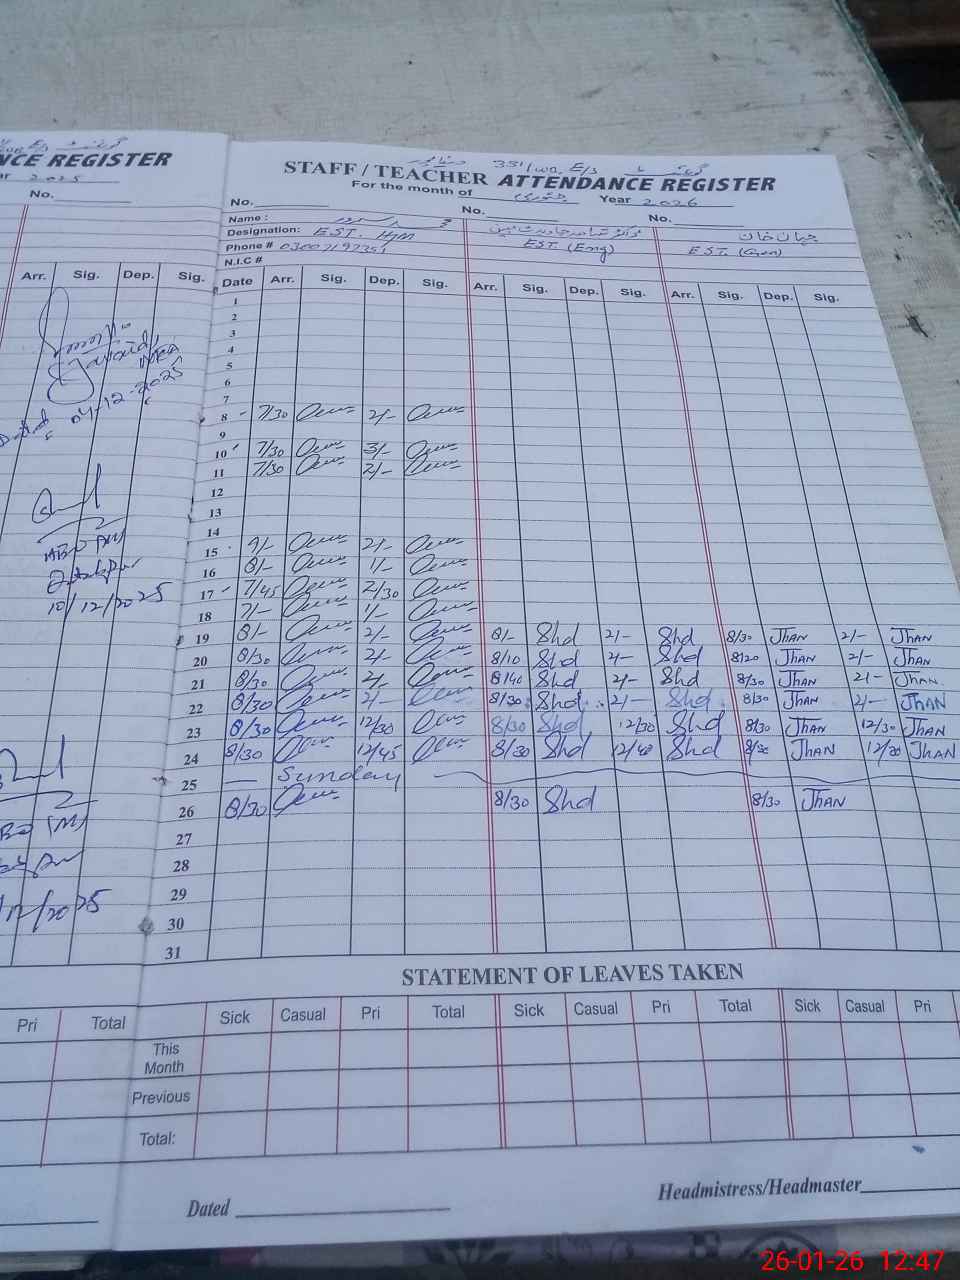 NCE REGISTER
ar 2025
No.
Arr. Sig. Dep. Sig.
04-12-2025
10/12/2025
/12/2025
Pri Total
331/WB E/S
STAFF / TEACHER ATTENDANCE REGISTER
For the month of جنوری Year 2026
No. No. No.
Name :
جہان خان
Designation: EST. HM EST (Eng) EST. (Gen)
Phone #
N.I.C #
Date Arr. Sig. Dep. Sig. Arr. Sig. Dep. Sig. Arr. Sig. Dep. Sig.
1
2
3
4
5
6
7
8 7/30 2/-
9
10 7/30 3/-
11 7/30 2/-
12
13
14
15 9/- 2/-
16 8/- 1/-
17 7/45 2/30
18 7/- 1/-
19 8/- 2/- 8/- Shd 2/- Shd 8/30 JHAN 2/- JHAN
20 8/30 2/- 8/10 Shd 2/- Shd 8/20 JHAN 2/- JHAN
21 8/30 2/- 8/40 Shd 2/- Shd 8/30 JHAN 2/- JHAN
22 8/30 2/- 8/30 Shd 2/- Shd 8/30 JHAN 2/- JHAN
23 8/30 12/30 8/30 Shd 12/30 Shd 8/30 JHAN 12/30 JHAN
24 8/30 12/45 8/30 Shd 12/40 Shd 8/30 JHAN 12/30 JHAN
25 — Sunday
26 8/30 8/30 Shd 8/30 JHAN
27
28
29
30
31
STATEMENT OF LEAVES TAKEN
Sick Casual Pri Total Sick Casual Pri Total Sick Casual Pri
This Month
Previous
Total:
Dated
Headmistress/Headmaster
26-01-26 12:47